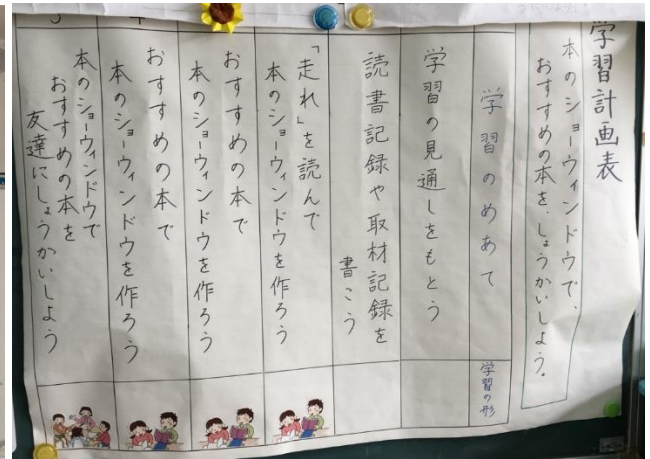 学習計画表
本のショーウィンドウで、
おすすめの本を、しょうかいしよう。
学習のめあて
学習の形
学習の見通しをもとう
読書記録や取材記録を
書こう
「走れ」を読んで
本のショーウィンドウを作ろう
おすすめの本で
本のショーウィンドウを作ろう
おすすめの本で
本のショーウィンドウを作ろう
本のショーウィンドウで
おすすめの本を
友達にしょうかいしよう